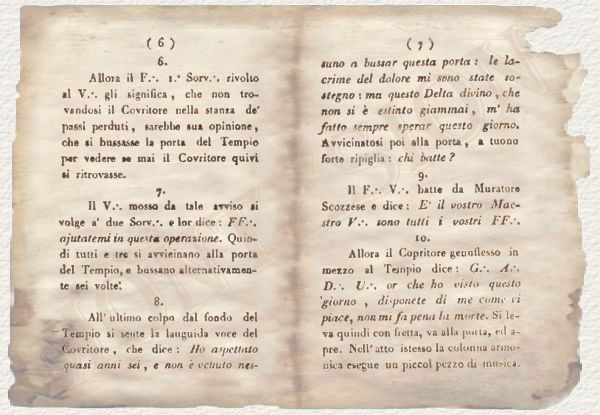 ( 6 )
6.
Allora il F∴ 1.° Sorv∴ rivolto
al V∴ gli significa , che non tro-
vandosi il Covritore nella stanza de'
passi perduti , sarebbe sua opinione,
che si bussasse la porta del Tempio
per vedere se mai il Covritore quivi
si ritrovasse.
7.
Il V∴ mosso da tale avviso si
volge a' due Sorv∴ e lor dice : FF∴
ajutatemi in questa operazione. Quin-
di tutti e tre si avvieinano alla porta
del Tempio, e bussano alternativamen-
te sei volte.
8.
All'ultimo colpo dal fondo del
Tempio si sente la languida voce del
Covritore , che dice : Ho aspettato
quasi anni sei , e non è venuto nes-
( 7 )
suno a bussar questa porta : le la-
crime del dolore mi sono state so-
stegno : ma questo Delta divino , che
non si è estinto giammai, m' ha
fatto sempre sperar questo giorno.
Avvicinatosi poi alla porta , a tuono
forte ripiglia : chi batte ?
9.
Il F∴ V∴ batte da Muratore
Scozzese e dice : E' il vostro Mae-
stro V∴ sono tutti i vostri FF∴
10.
Allora il Copritore genuflesso in
mezzo al Tempio dice : G∴ A∴
D∴ U∴ or che ho visto questo
giorno , disponete di me come vi
piace, non mi fa pena la morte. Si le-
va quindi con fretta, va alla porta, ed a-
pre. Nell'atto istesso la colonna armo-
nica esegue un piccol pezzo di musica.